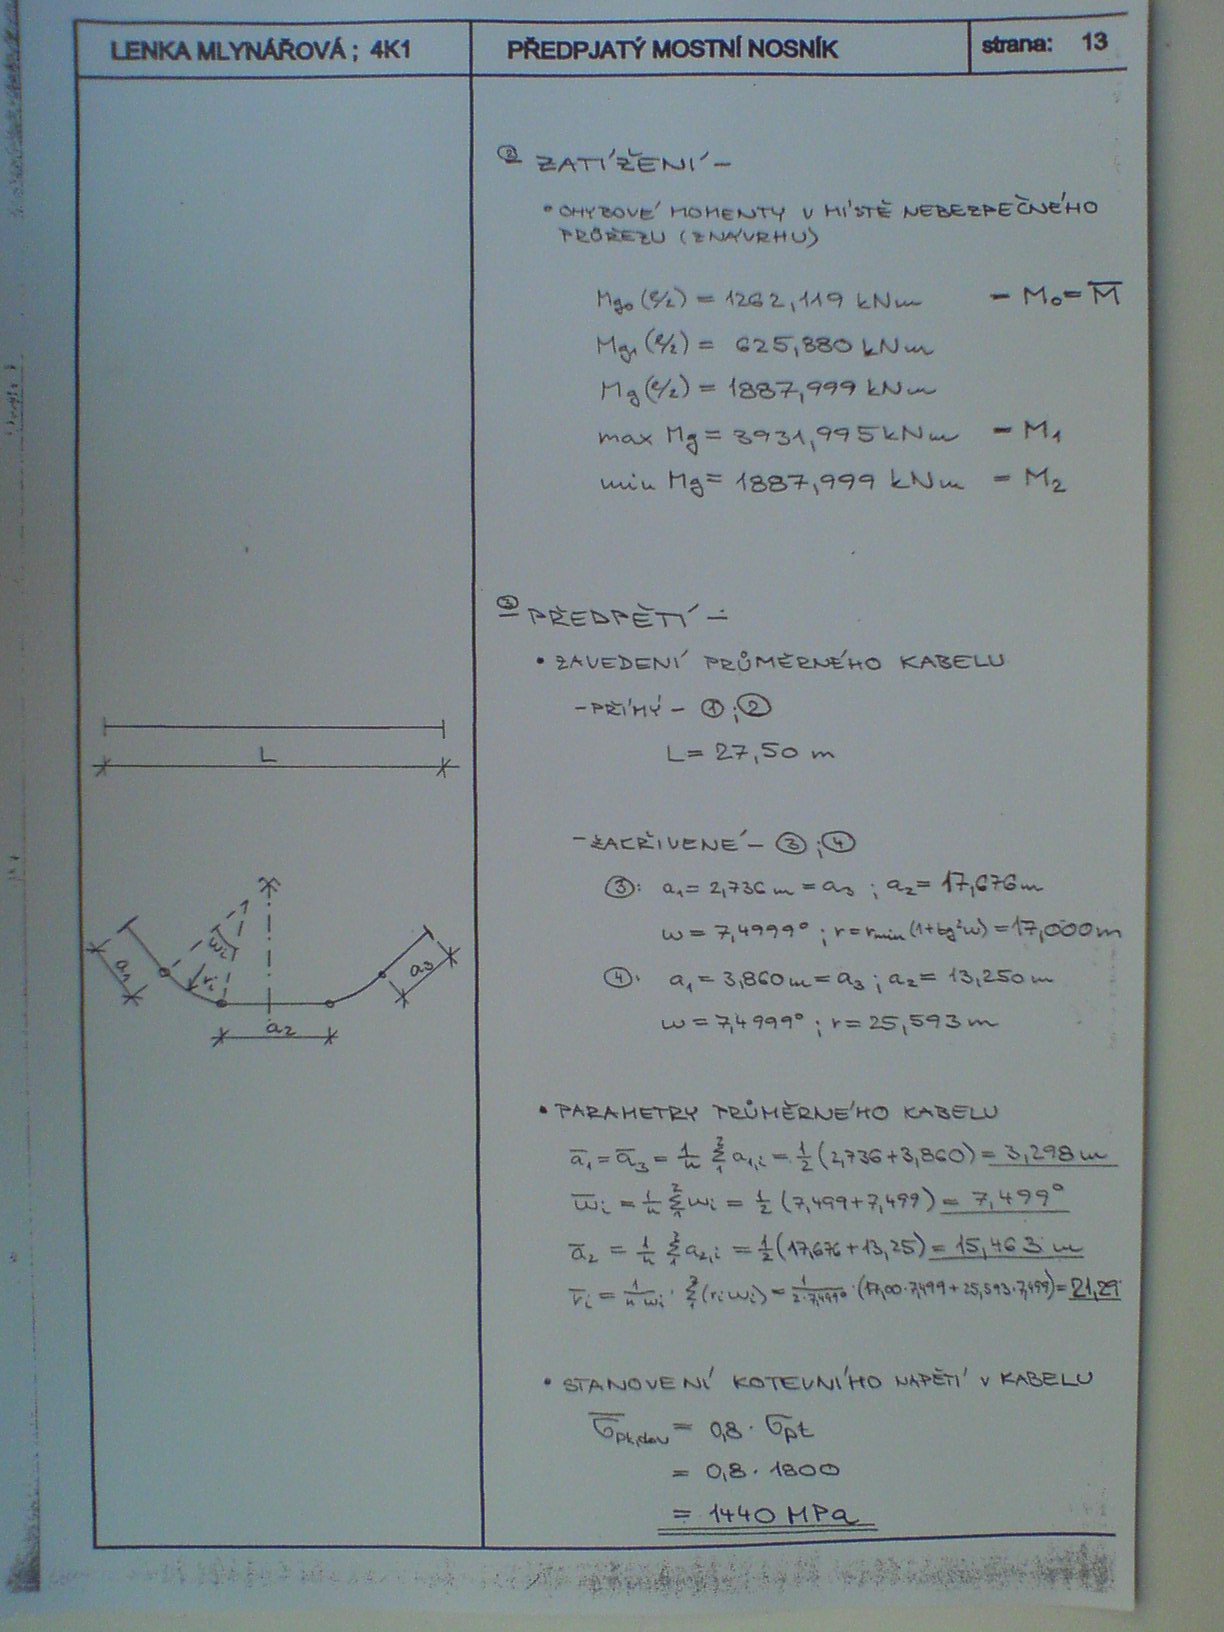 LENKA MLYNÁŘOVÁ ; 4K1
PŘEDPJATÝ MOSTNÍ NOSNÍK
strana: 13
② ZATÍŽENÍ –
• OHYBOVÉ MOMENTY V MÍSTĚ NEBEZPEČNÉHO
PRŮŘEZU (Z NÁVRHU)
Mg₀ (ℓ/2) = 1262,119 kNm – M₀ = M̅
Mg₁ (ℓ/2) = 625,880 kNm
Mg (ℓ/2) = 1887,999 kNm
max Mg = 3931,995 kNm – M₁
min Mg = 1887,999 kNm – M₂
③ PŘEDPĚTÍ –
• ZAVEDENÍ PRŮMĚRNÉHO KABELU
– PŘÍMÝ – ① ; ②
L = 27,50 m
L
– ZAKŘIVENÉ – ③ ; ④
③: a₁ = 2,736 m = a₃ ; a₂ = 17,676 m
ω = 7,4999° ; r = rmin (1+tg²ω) = 17,000 m
④: a₁ = 3,860 m = a₃ ; a₂ = 13,250 m
ω = 7,4999° ; r = 25,593 m
a₁
ωi
ri
a₃
a₂
• PARAMETRY PRŮMĚRNÉHO KABELU
a̅₁ = a̅₃ = 1/n Σ₁² a₁,i = 1/2 (2,736 + 3,860) = 3,298 m
ω̅i = 1/n Σ₁² ωi = 1/2 (7,499 + 7,499) = 7,499°
a̅₂ = 1/n Σ₁² a₂,i = 1/2 (17,676 + 13,25) = 15,463 m
r̅i = 1/(n ωi) · Σ₁² (ri ωi) = 1/(2·7,499°) · (17,00·7,499 + 25,593·7,499) = 21,29
• STANOVENÍ KOTEVNÍHO NAPĚTÍ V KABELU
σ̅pk,dov = 0,8 · σpt
= 0,8 · 1800
= 1440 MPa